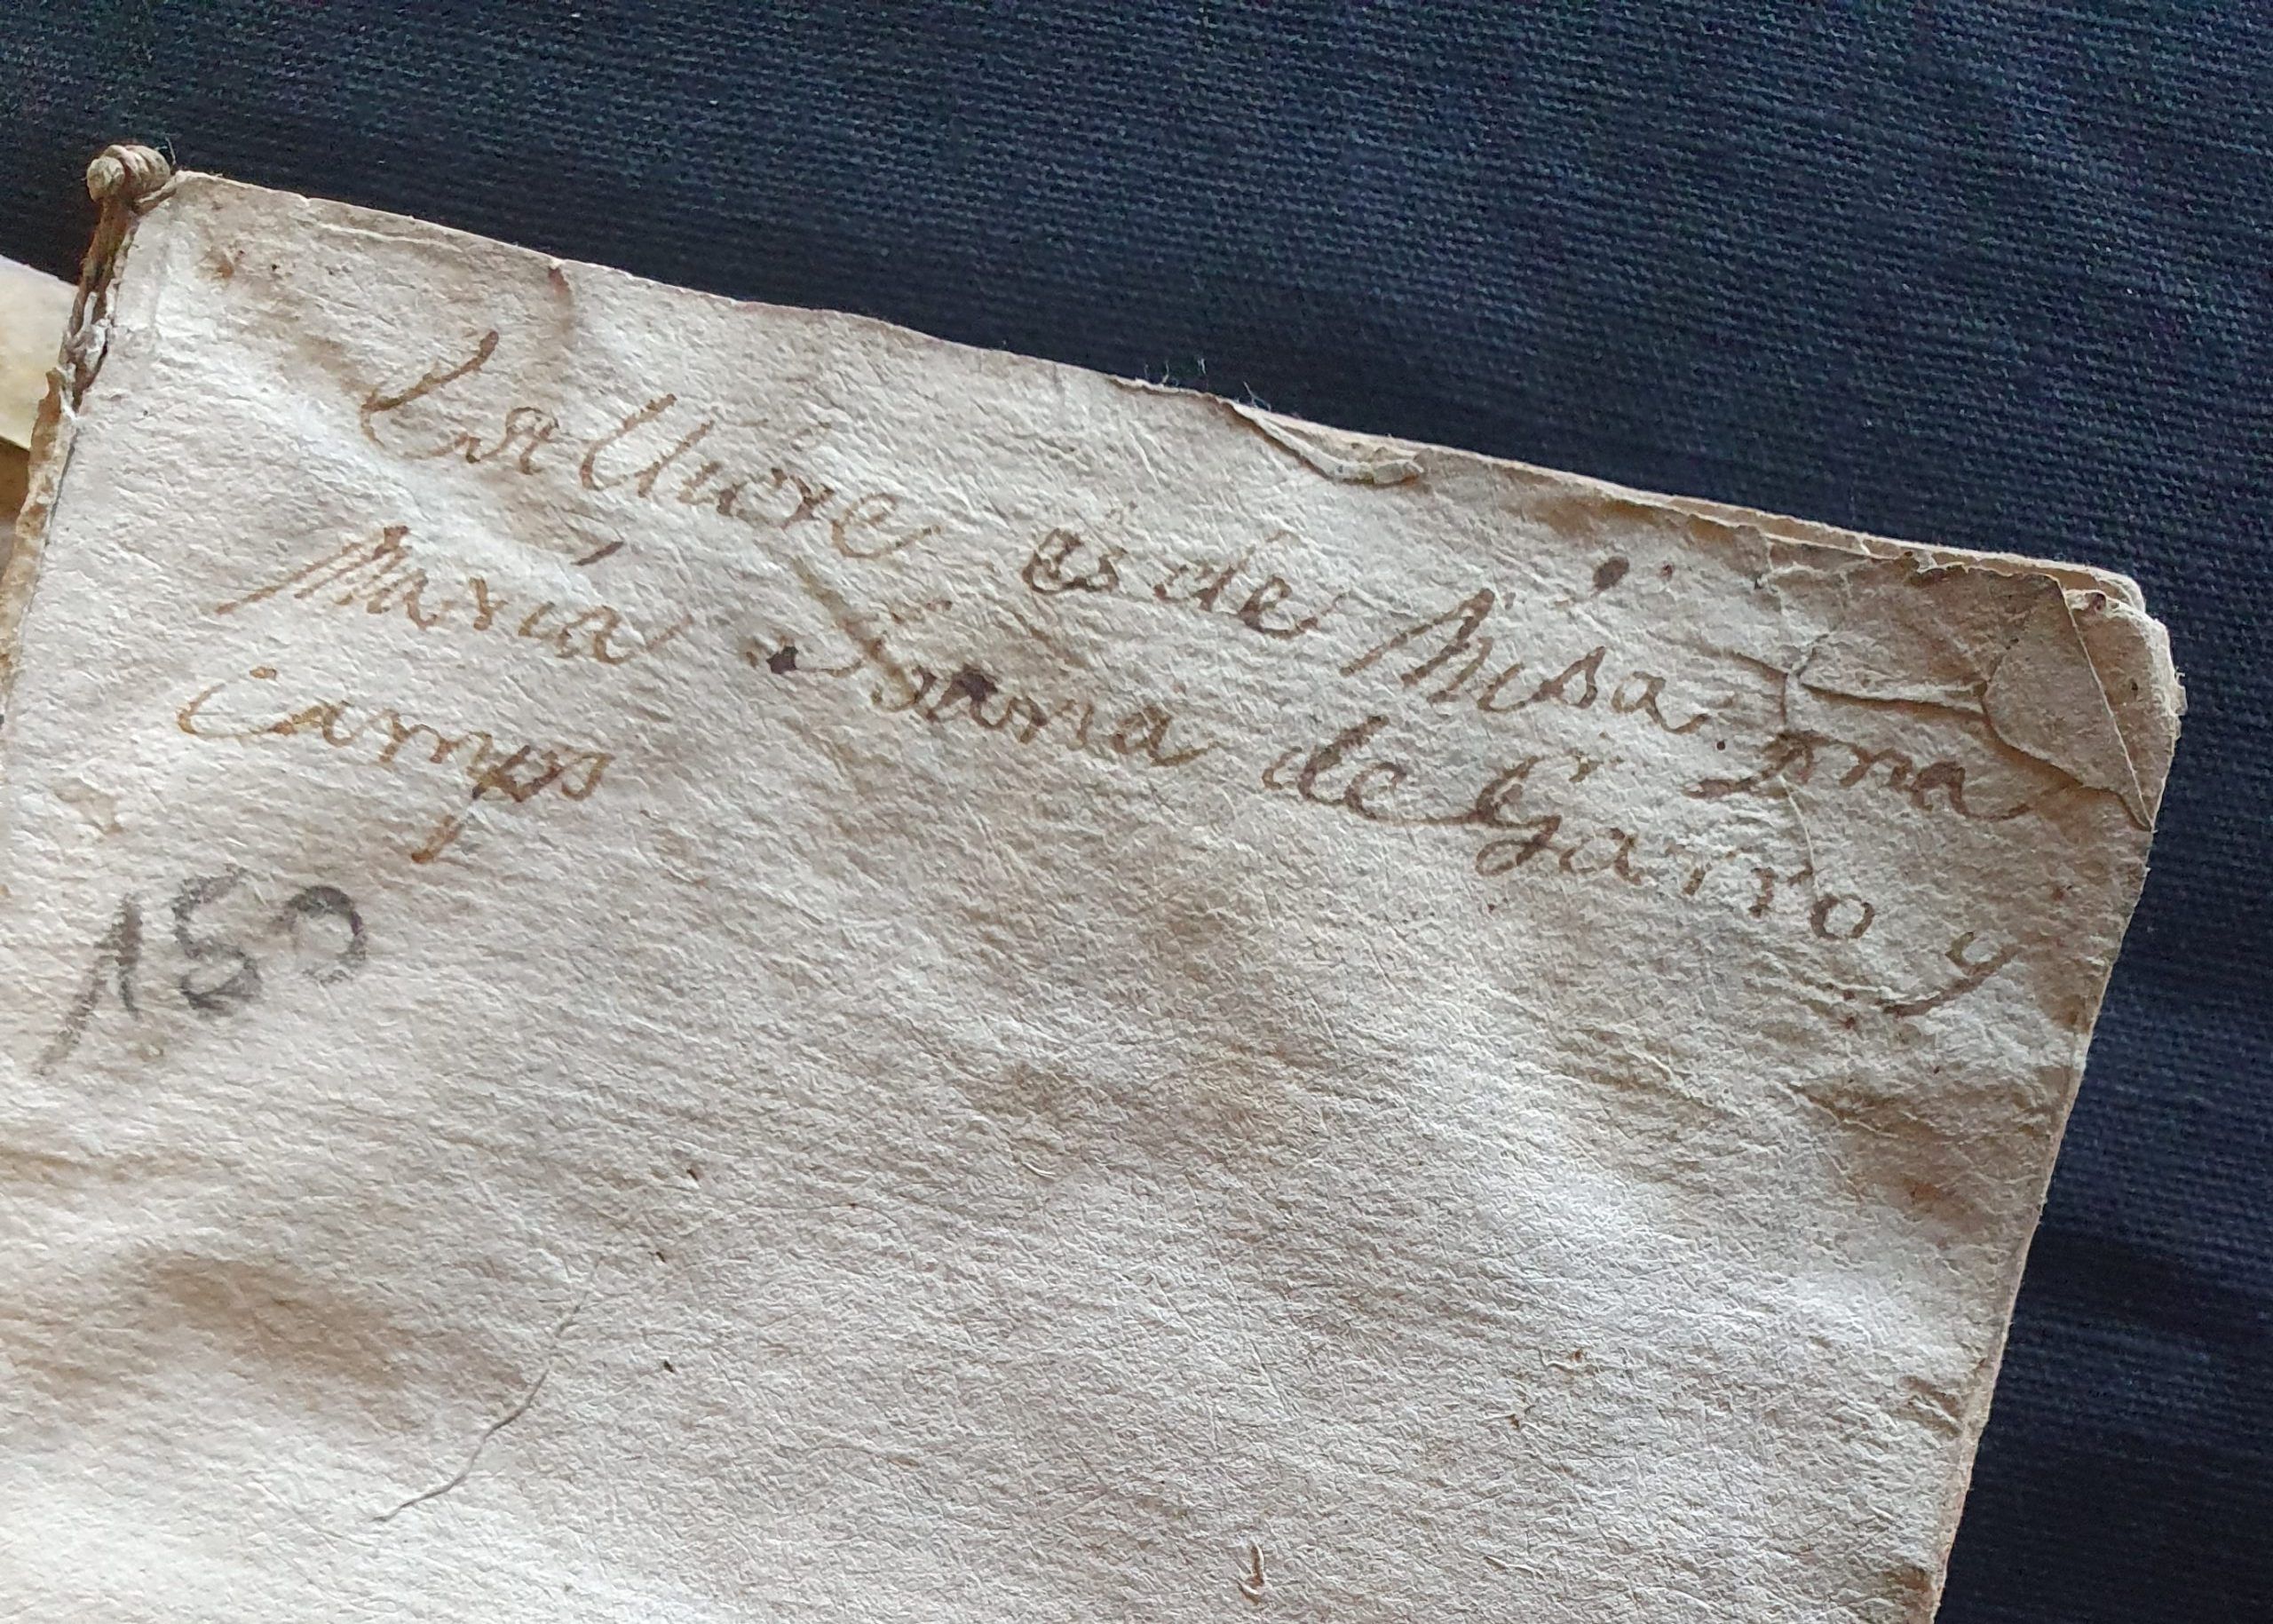 Est llibre es de Misa ma
Maria Joana de Garro y
Camps
150